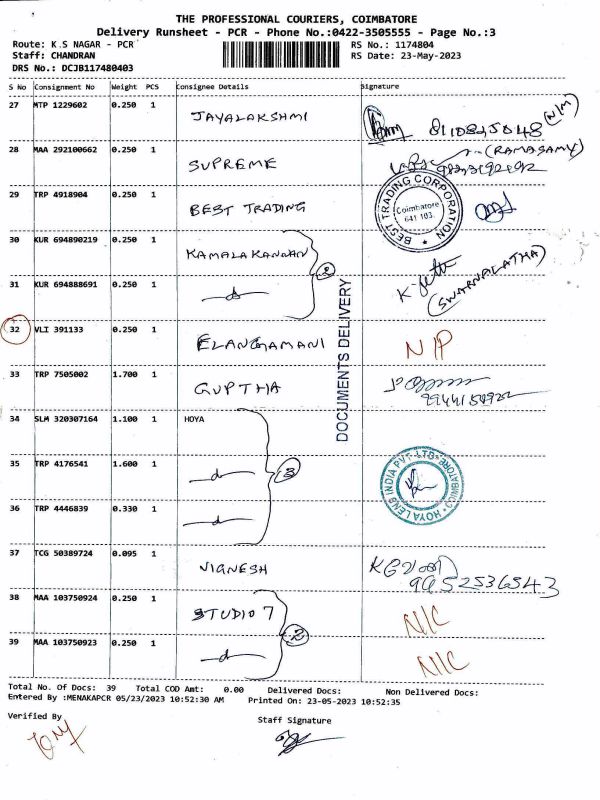 THE PROFESSIONAL COURIERS, COIMBATORE
Delivery Runsheet - PCR - Phone No.:0422-3505555 - Page No.:3
Route: K.S NAGAR - PCR
RS No.: 1174804
Staff: CHANDRAN
RS Date: 23-May-2023
DRS No.: DCJB117480403
S No Consignment No Weight PCS Consignee Details Signature
27 MTP 1229602 0.250 1 JAYALAKSHMI
N/M
28 MAA 292100662 0.250 1 SUPREME (RAMASAMY)
29 TRP 4918904 0.250 1 BEST TRADING
BEST TRADING CORPORATION
Coimbatore
641 103.
30 KUR 694890219 0.250 1 KAMALAKANNAN
2
31 KUR 694888691 0.250 1
(SWARNALATHA)
DOCUMENTS DELIVERY
32 VLI 391133 0.250 1 ELANGAMANI N/P
33 TRP 7505002 1.700 1 GUPTHA
34 SLM 320307164 1.100 1 HOYA
35 TRP 4176541 1.600 1
3
HOYA LENS INDIA PVT. LTD. COIMBATORE
36 TRP 4446839 0.330 1
37 TCG 50389724 0.095 1 VIGNESH
9952536543
38 MAA 103750924 0.250 1 STUDIO 7 N/C
2
39 MAA 103750923 0.250 1 N/C
Total No. Of Docs: 39 Total COD Amt: 0.00 Delivered Docs: Non Delivered Docs:
Entered By :MENAKAPCR 05/23/2023 10:52:30 AM Printed On: 23-05-2023 10:52:35
Verified By
Staff Signature